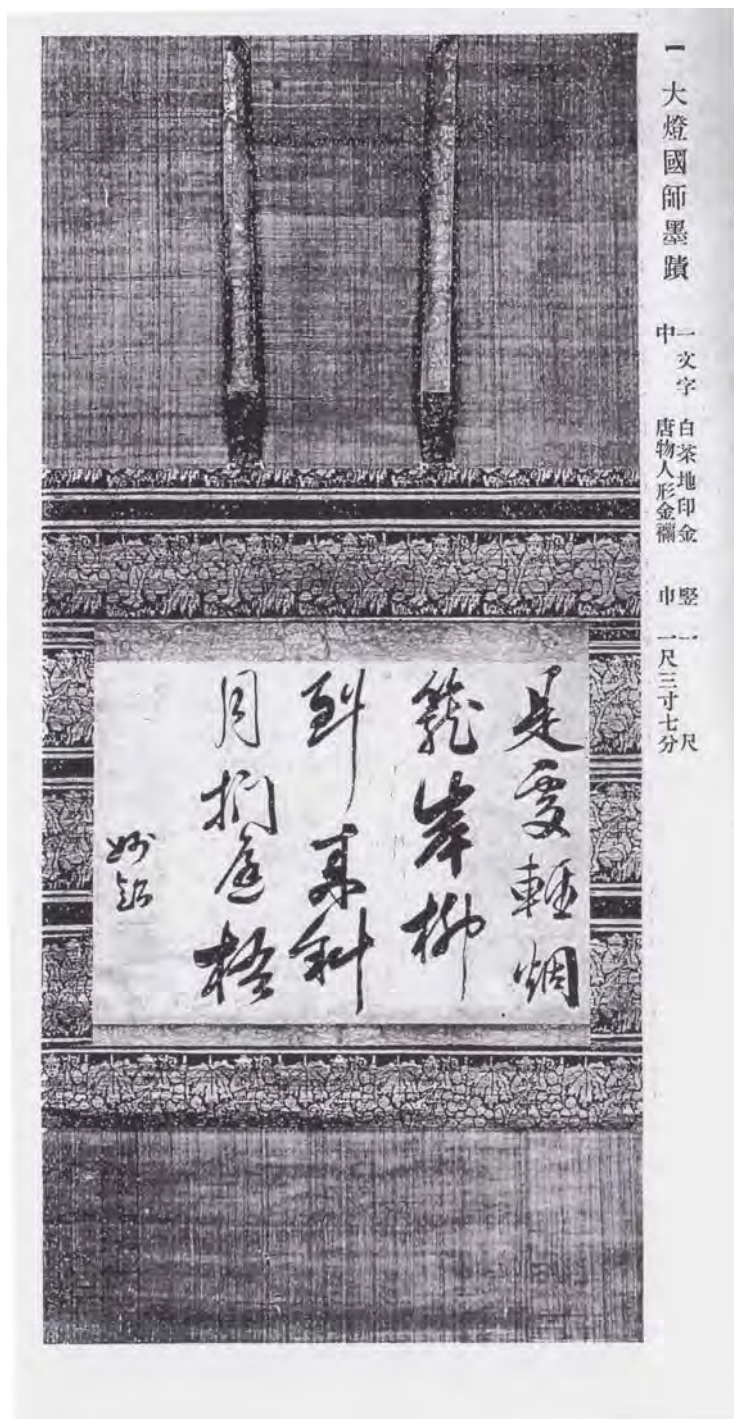 一 大燈國師墨蹟
一文字 白茶地印金 竪一尺
中 唐物人形金襴 巾一尺三寸七分
是處輕烟
籠岸柳
到来斜
月掛庭梧
妙超